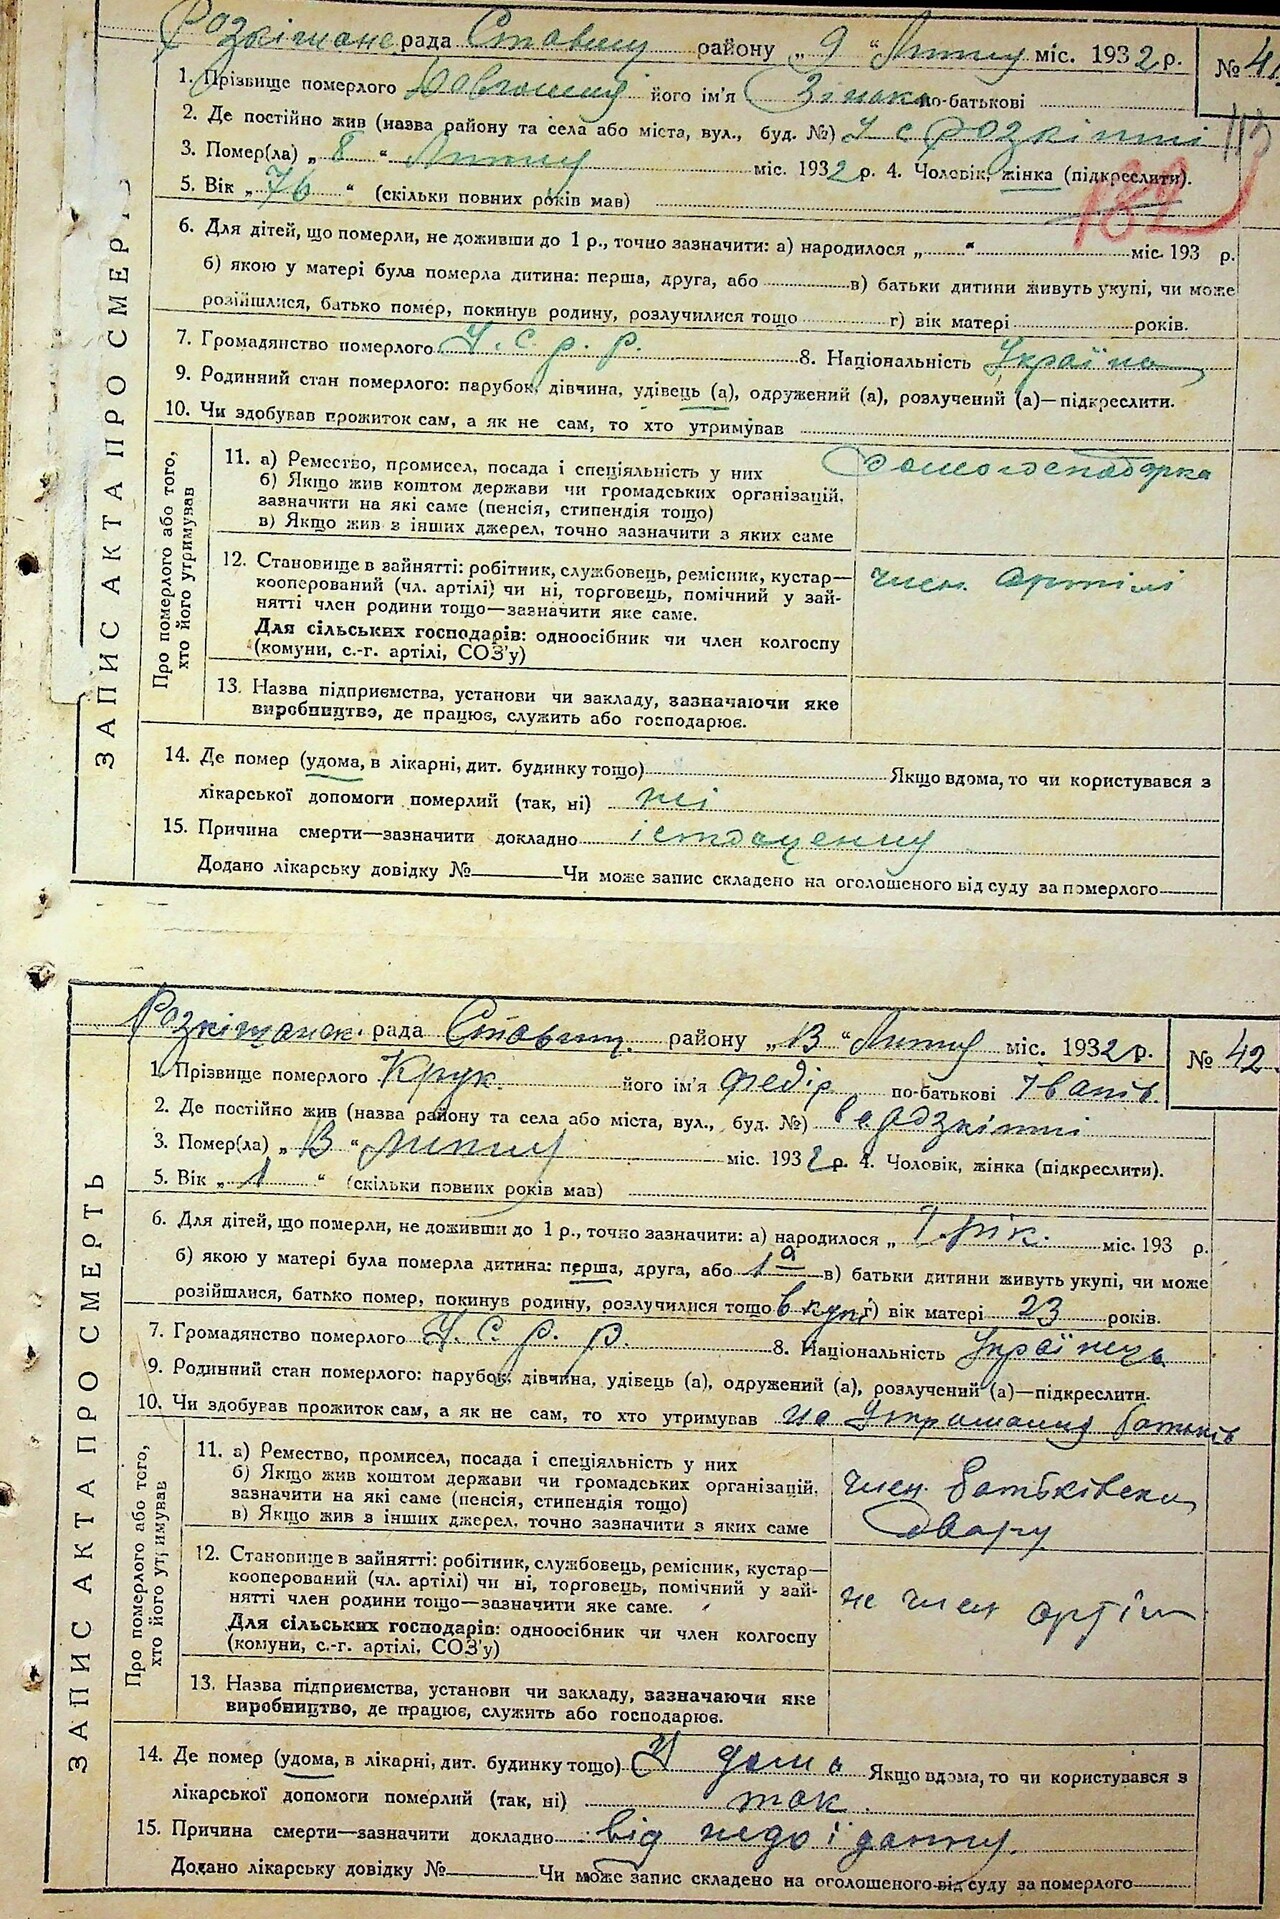 Розкішане рада Ставищ району „ 9 “ Липня міс. 1932 р.
№ 41.
113
182
ЗАПИС АКТА ПРО СМЕРТЬ
1. Прізвище померлого його ім'я Зінька по-батькові
2. Де постійно жив (назва району та села або міста, вул., буд. №) У с Розкішні
3. Помер(ла) „ 8 “ Липня міс. 1932 р. 4. Чоловік, жінка (підкреслити).
5. Вік „ 76 “ (скільки повних років мав)
6. Для дітей, що померли, не доживши до 1 р., точно зазначити: а) народилося „ “ міс. 193 р.
б) якою у матері була померла дитина: перша, друга, або в) батьки дитини живуть укупі, чи може
розійшлися, батько помер, покинув родину, розлучилися тощо г) вік матері років.
7. Громадянство померлого У. С. р. р. 8. Національність Україна
9. Родинний стан померлого: парубок, дівчина, удівець (а), одружений (а), розлучений (а)—підкреслити.
10. Чи здобував прожиток сам, а як не сам, то хто утримував
Про померлого або того,
хто його утримував
11. а) Ремество, промисел, посада і спеціяльність у них
б) Якщо жив коштом держави чи громадських організацій,
зазначити на які саме (пенсія, стипендія тощо)
в) Якщо жив з інших джерел, точно зазначити з яких саме
Домогосподарка
12. Становище в зайнятті: робітник, службовець, ремісник, кустар—
кооперований (чл. артілі) чи ні, торговець, помічний у зай-
нятті член родини тощо—зазначити яке саме.
Для сільських господарів: одноосібник чи член колгоспу
(комуни, с.-г. артілі, СОЗ'у)
член артілі
13. Назва підприємства, установи чи закладу, зазначаючи яке
виробництво, де працює, служить або господарює.
14. Де помер (удома, в лікарні, дит. будинку тощо) Якщо вдома, то чи користувався з
лікарської допомоги померлий (так, ні) ні
15. Причина смерти—зазначити докладно істощення
Додано лікарську довідку № Чи може запис складено на оголошеного від суду за померлого
Розкішанск. рада Ставищ. району „ 13 “ Липня міс. 1932 р.
№ 42.
ЗАПИС АКТА ПРО СМЕРТЬ
1. Прізвище померлого Крук його ім'я Федір по-батькові Іванів
2. Де постійно жив (назва району та села або міста, вул., буд. №) в Розкішні
3. Помер(ла) „ 13 “ Липня міс. 1932 р. 4. Чоловік, жінка (підкреслити).
5. Вік „ 1 “ (скільки повних років мав)
6. Для дітей, що померли, не доживши до 1 р., точно зазначити: а) народилося „ 1 рік. міс. 193 р.
б) якою у матері була померла дитина: перша, друга, або 1а в) батьки дитини живуть укупі, чи може
розійшлися, батько помер, покинув родину, розлучилися тощо вкупі г) вік матері 23 років.
7. Громадянство померлого У. С. р. р. 8. Національність Українець
9. Родинний стан померлого: парубок, дівчина, удівець (а), одружений (а), розлучений (а)—підкреслити.
10. Чи здобував прожиток сам, а як не сам, то хто утримував на утриманню батьків
Про померлого або того,
хто його утримував
11. а) Ремество, промисел, посада і спеціяльність у них
б) Якщо жив коштом держави чи громадських організацій,
зазначити на які саме (пенсія, стипендія тощо)
в) Якщо жив з інших джерел, точно зазначити з яких саме
член батьківськ
двору
12. Становище в зайнятті: робітник, службовець, ремісник, кустар—
кооперований (чл. артілі) чи ні, торговець, помічний у зай-
нятті член родини тощо—зазначити яке саме.
Для сільських господарів: одноосібник чи член колгоспу
(комуни, с.-г. артілі, СОЗ'у)
не член артілі
13. Назва підприємства, установи чи закладу, зазначаючи яке
виробництво, де працює, служить або господарює.
14. Де помер (удома, в лікарні, дит. будинку тощо) У дома Якщо вдома, то чи користувався з
лікарської допомоги померлий (так, ні) так.
15. Причина смерти—зазначити докладно від недоїдання.
Додано лікарську довідку № Чи може запис складено на оголошеного від суду за померлого